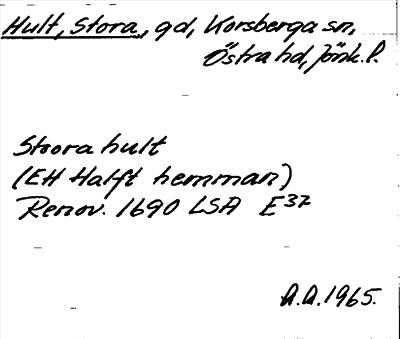 Hult, Stora, gd, Korsberga sn,
Östra hd, Jönk. l.
Stoora hult
(EH Halft hemman)
Renov. 1690 LSA E37
A.A. 1965.